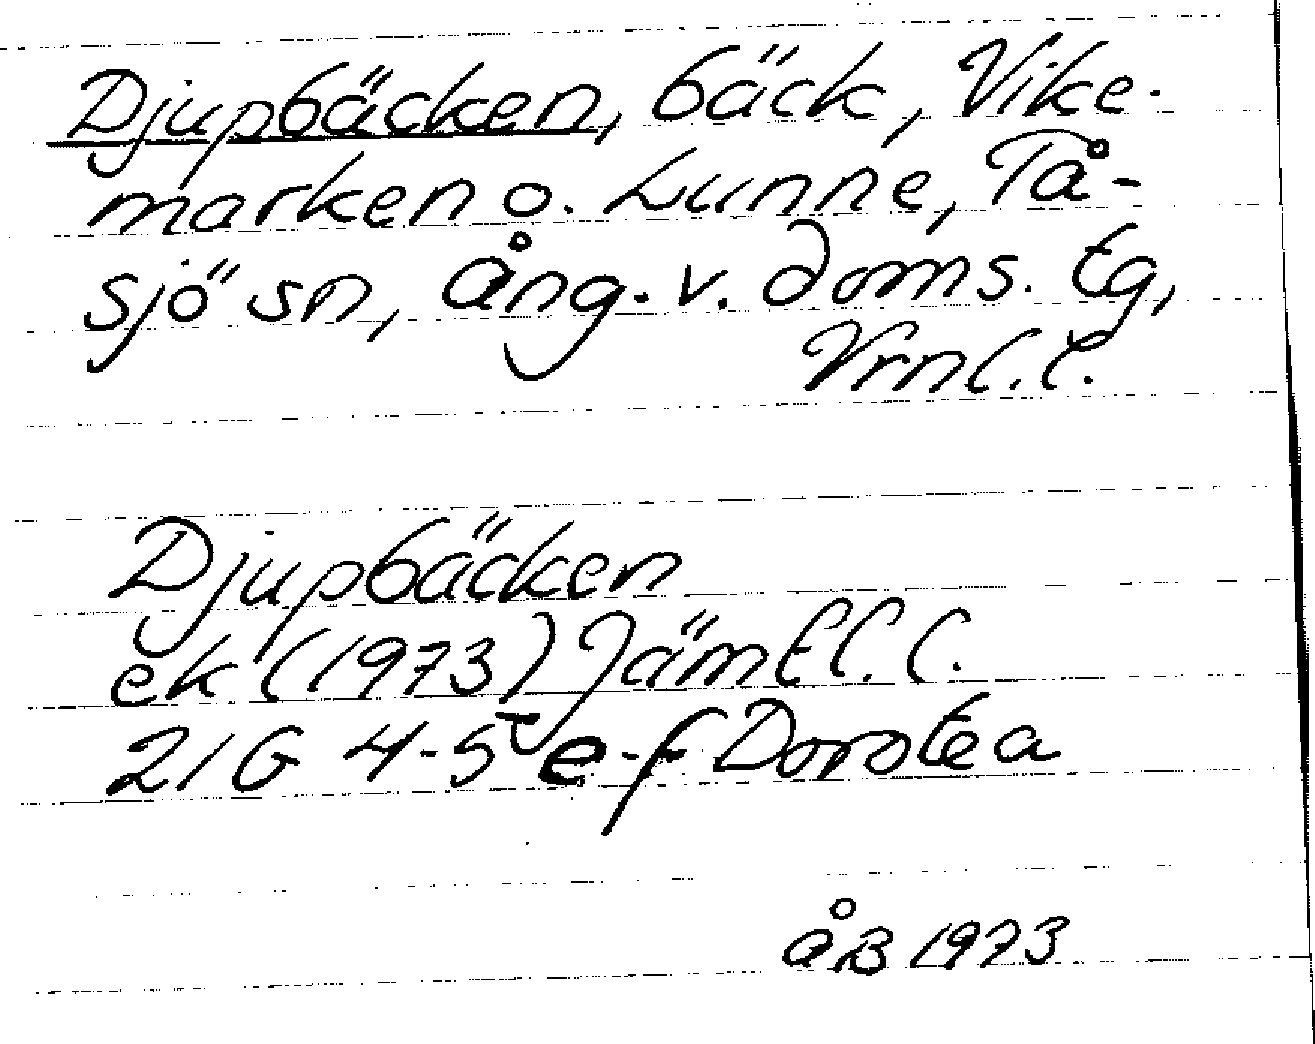 Djupbäcken, bäck, Vike-
marken o. Lunne, Tå-
sjö sn, Ång. v. doms. tg,
Vrnl. l.
Djupbäcken
ek (1973) Jämtl. l.
21G 4-5 e-f Dorotea
ÅB 1973